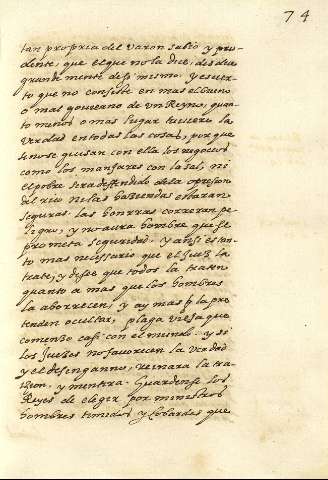 74
tan propria del varon sabio y pru-
dente, que el que no la dice, desdice
grande mente de si mismo. y es cier-
to que no consiste en mas el bueno
o mas gouierno de un Reyno, quan-
to menos o mas lugar tuuiere la
verdad en todas las cosas, porque
si no se guisan con ella los negocios
como los manjares con la sal, ni
el pobre sera deffendido de la opresion
del rico ni las haziendas estaran
seguras. las honrras correran pe-
ligro, y no aura hombre que se
prometa seguridad. y ansi es tan-
to mas necessario que el Juez la
trate, y dessee que todos la traten
quanto a mas que los hombres
la aborrecen, y ay mas q la pre-
tenden ocultar, plaga vieja que
comenzo casi con el mundo. y si
los Juezes no fauorecen la verdad
y el desenganno, reinara la tra-
icion, y mentira. Guardense los
Reyes de elegir por ministros
hombres timidos y cobardes que